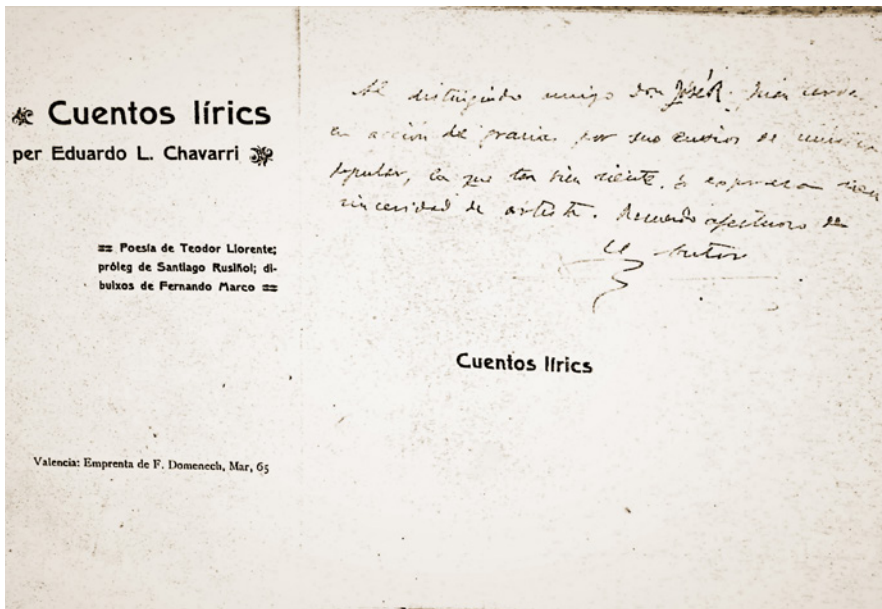 Cuentos lírics
per Eduardo L. Chavarri
Poesía de Teodor Llorente;
próleg de Santiago Rusiñol; di-
buixos de Fernando Marco
Valencia: Emprenta de F. Domenech, Mar, 65
Al distinguido amigo Don José R.
en acción de gracias por sus envios de música
popular, la que tan bien siente, y expresa con
sinceridad de artista. Recuerdo afectuoso de
el Autor
Cuentos lírics